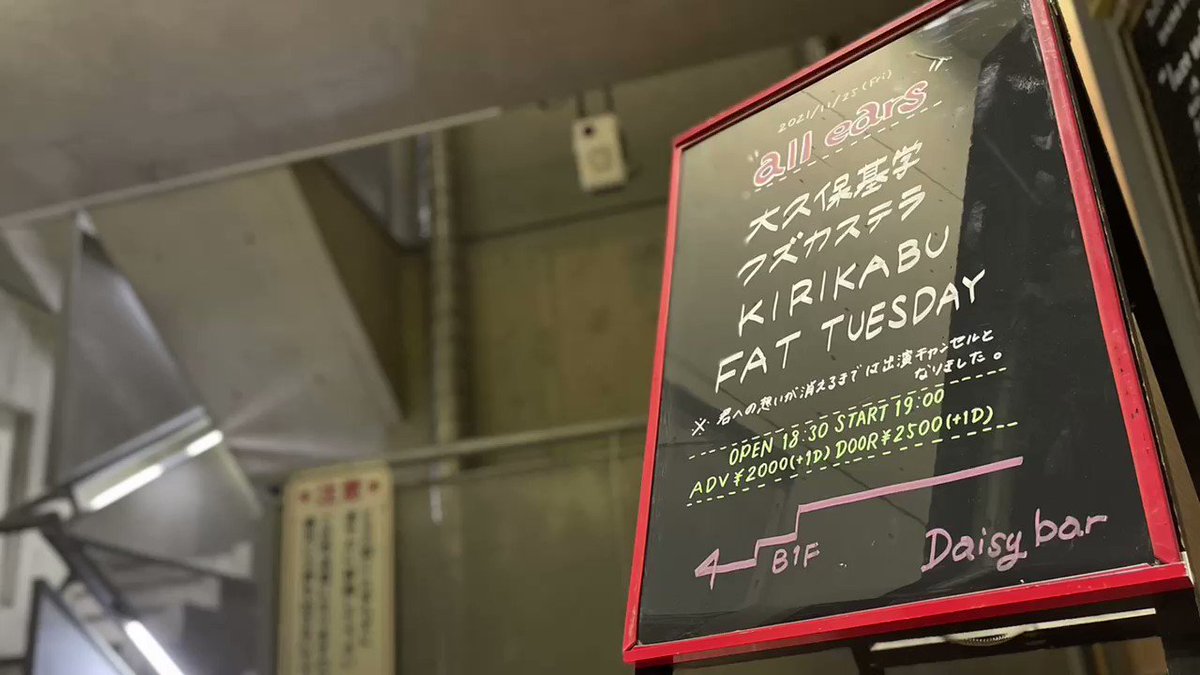 2021/11/25(Fri)
"all ears"
大久保基学
クズカステラ
KIRIKABU
FAT TUESDAY
※君への想いが消えるまでは出演キャンセルと
なりました。
OPEN 18:30 START 19:00
ADV ¥2000(+1D) DOOR ¥2500(+1D)
B1F
Daisy bar
注意